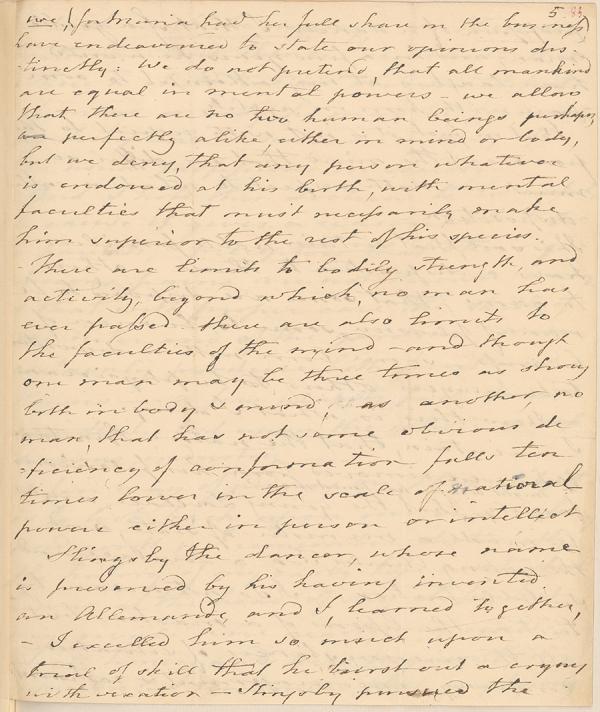 5
we! for Maria had her full share in the business
have endeavoured to state our opinions dis-
-tinctly: We do not pretend, that all mankind
are equal in mental powers - we allow
that there are no two human beings perhaps,
perfectly alike, either in mind or body,
but we deny, that any person whatever
is endowed at his birth, with mental
faculties that must necessarily make
him superior to the rest of his species.
There are limits to bodily strength, and
activity, beyond which, no man has
ever passed there are also limits to
the faculties of the mind - and though
one man may be three times as strong
both in body & mind, as another, no
man, that has not some obvious de
-ficiency of conformation falls ten
times lower in the scale of national
powers either in person or intellect
Slingsby the dancer, whose name
is preserved by his having invented
an Allemande, and I, learned together,
- I excelled him so much upon a
trial of skill that he burst out a crying
with vexation - Slingsby pursued the